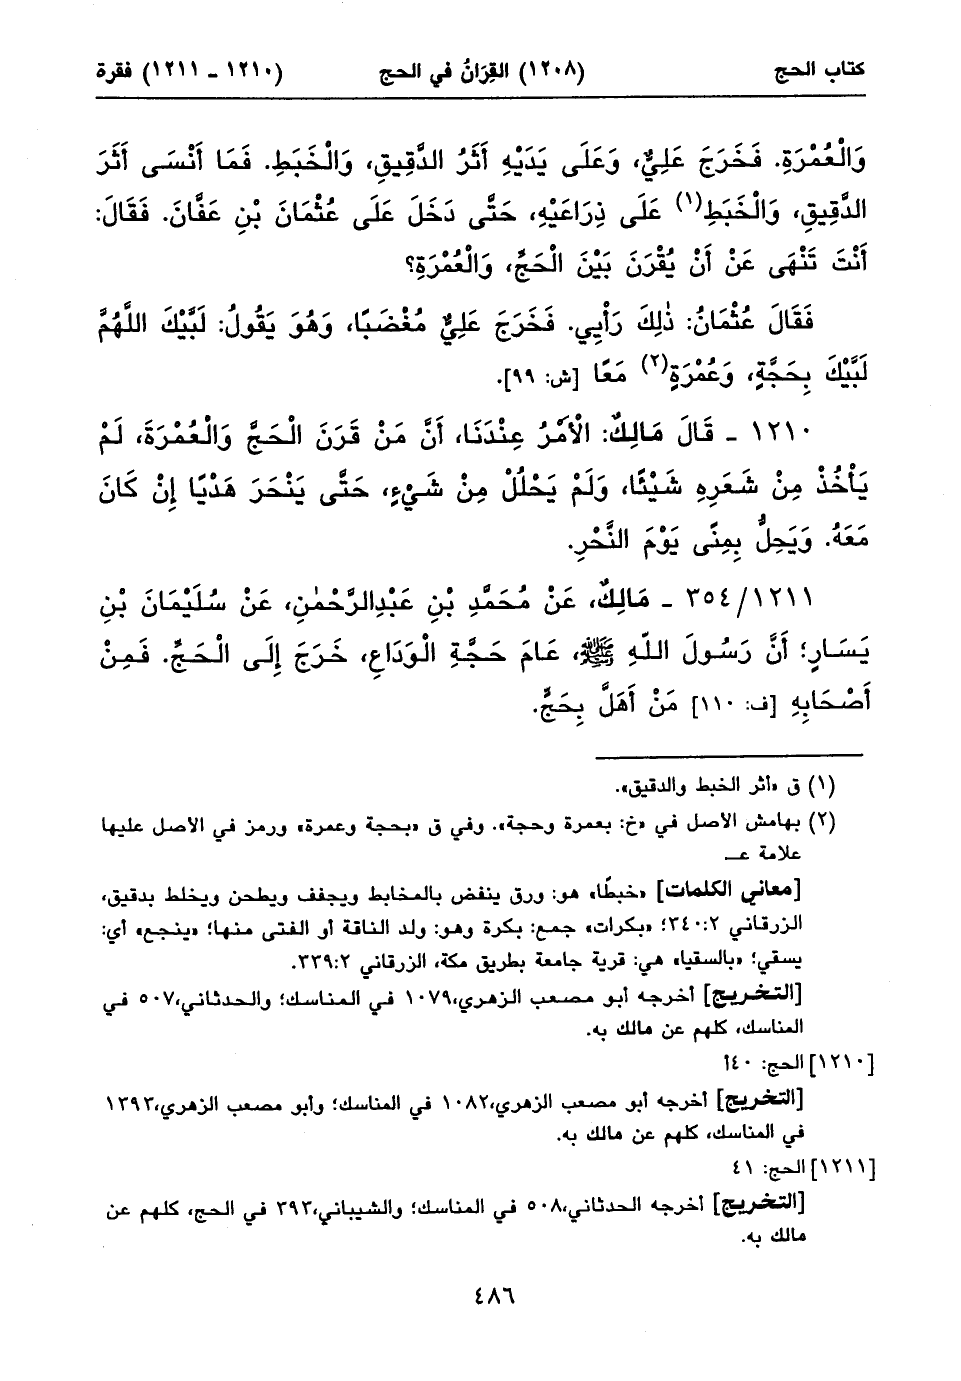 كتاب الحج (١٢٠٨) القِرَانُ في الحج (١٢١٠ ـ ١٢١١) فقرة
وَالْعُمْرَةِ. فَخَرَجَ عَلِيٌّ، وَعَلَى يَدَيْهِ أَثَرُ الدَّقِيقِ، وَالْخَبَطِ. فَمَا أَنْسَى أَثَرَ
الدَّقِيقِ، وَالْخَبَطِ(١) عَلَى ذِرَاعَيْهِ، حَتَّى دَخَلَ عَلَى عُثْمَانَ بْنِ عَفَّانَ. فَقَالَ:
أَنْتَ تَنْهَى عَنْ أَنْ يُقْرَنَ بَيْنَ الْحَجِّ، وَالْعُمْرَةِ؟
فَقَالَ عُثْمَانُ: ذٰلِكَ رَأْيِي. فَخَرَجَ عَلِيٌّ مُغْضَبًا، وَهُوَ يَقُولُ: لَبَّيْكَ اللَّهُمَّ
لَبَّيْكَ بِحَجَّةٍ، وَعُمْرَةٍ(٢) مَعًا [ش: ٩٩].
١٢١٠ ـ قَالَ مَالِكٌ: الْأَمْرُ عِنْدَنَا، أَنَّ مَنْ قَرَنَ الْحَجَّ وَالْعُمْرَةَ، لَمْ
يَأْخُذْ مِنْ شَعَرِهِ شَيْئًا، وَلَمْ يَحْلُلْ مِنْ شَيْءٍ، حَتَّى يَنْحَرَ هَدْيًا إِنْ كَانَ
مَعَهُ. وَيَحِلُّ بِمِنًى يَوْمَ النَّحْرِ.
٣٥٤/١٢١١ ـ مَالِكٌ، عَنْ مُحَمَّدِ بْنِ عَبْدِالرَّحْمٰنِ، عَنْ سُلَيْمَانَ بْنِ
يَسَارٍ؛ أَنَّ رَسُولَ اللّهِ ﷺ، عَامَ حَجَّةِ الْوَدَاعِ، خَرَجَ إِلَى الْحَجِّ. فَمِنْ
أَصْحَابِهِ [ف: ١١٠] مَنْ أَهَلَّ بِحَجٍّ.
(١) ق «أثر الخبط والدقيق».
(٢) بهامش الأصل في «خ: بعمرة وحجة». وفي ق «بحجة وعمرة» ورمز في الأصل عليها
علامة عـــ
[معاني الكلمات] «خبطًا» هو: ورق ينفض بالمخابط ويجفف ويطحن ويخلط بدقيق،
الزرقاني ٣٤٠:٢؛ «بكرات» جمع: بكرة وهو: ولد الناقة أو الفتى منها؛ «ينجع» أي:
يسقي؛ «بالسقيا» هي: قرية جامعة بطريق مكة، الزرقاني ٣٣٩:٢.
[التخريج] أخرجه أبو مصعب الزهري،١٠٧٩ في المناسك؛ والحدثاني،٥٠٧ في
المناسك، كلهم عن مالك به.
[١٢١٠] الحج: ٤٠أ
[التخريج] أخرجه أبو مصعب الزهري،١٠٨٢ في المناسك؛ وأبو مصعب الزهري،١٣٩٣
في المناسك، كلهم عن مالك به.
[١٢١١] الحج: ٤١
[التخريج] أخرجه الحدثاني،٥٠٨ في المناسك؛ والشيباني،٣٩٣ في الحج، كلهم عن
مالك به.
٤٨٦